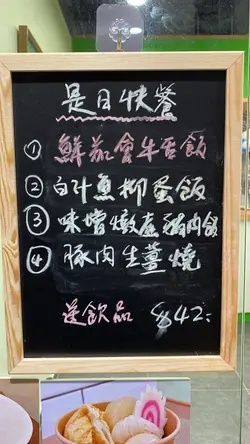 是日快餐
① 鮮茄會牛舌飯
② 白汁魚柳蛋飯
③ 味增燉屋豬肉飯
④ 豚肉生薑燒
送飲品 $42: